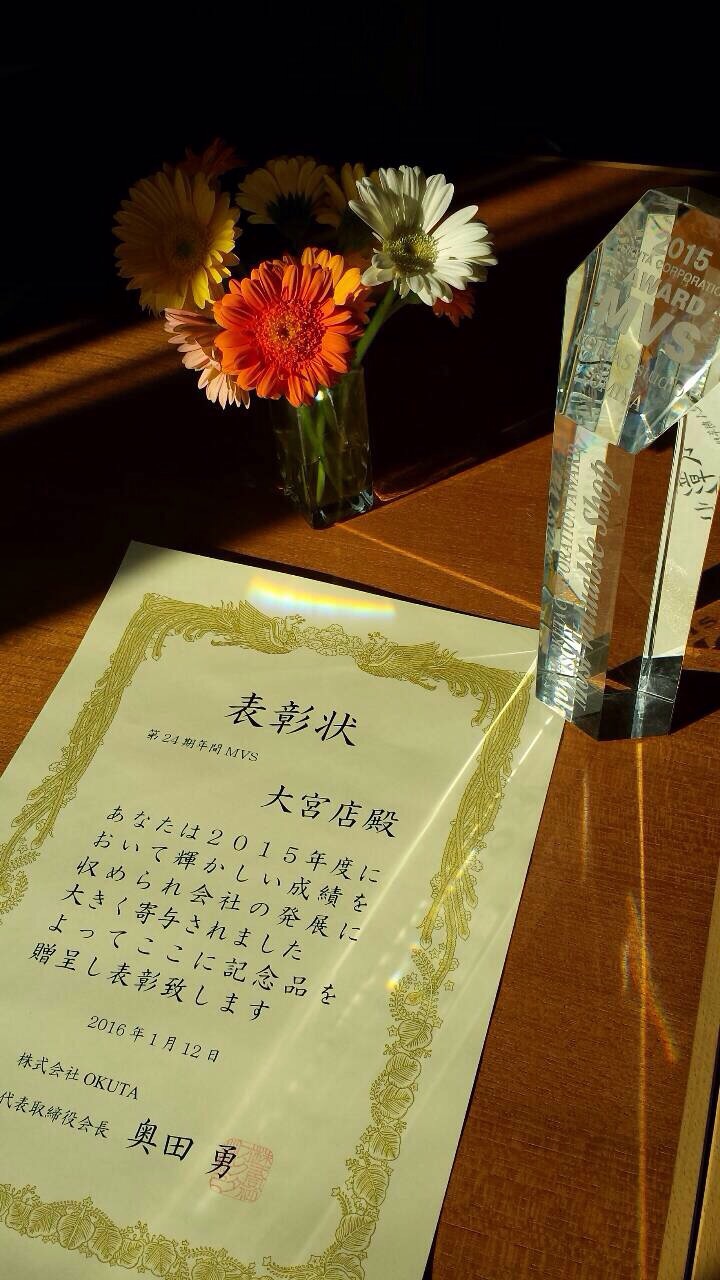 表彰状
第24期年間MVS
大宮店殿
あなたは2015年度に
おいて輝かしい成績を
収められ会社の発展に
大きく寄与されました
よってここに記念品を
贈呈し表彰致します
2016年1月12日
株式会社OKUTA
代表取締役会長 奥田 勇
2015
CORPORATION
AWARD
MVS